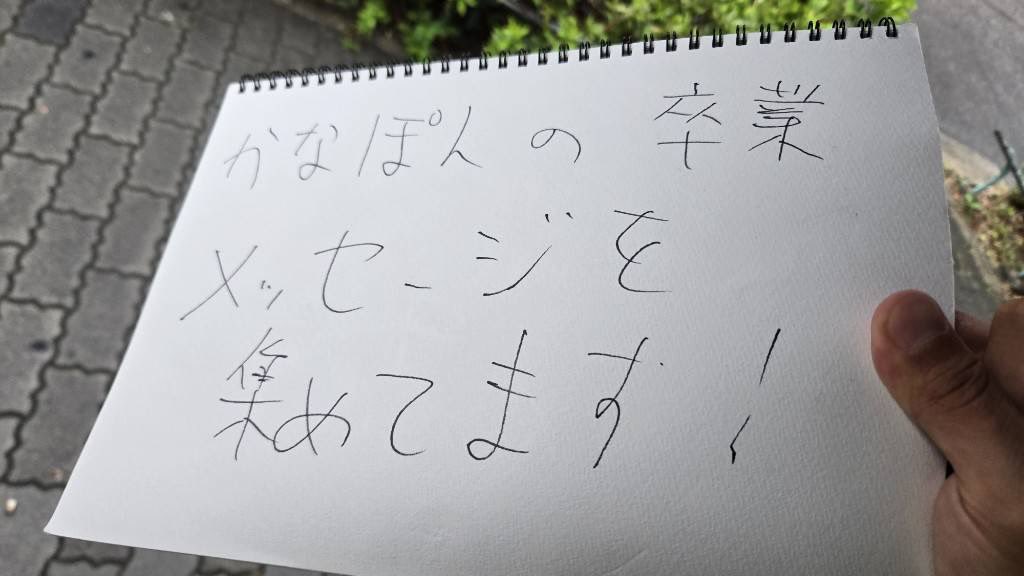 かなぽんの卒業
メッセージを
集めてます!